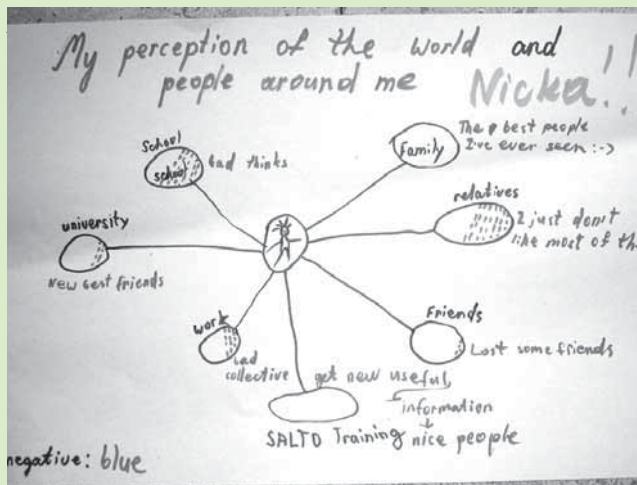 My perception of the world and
people around me Nicka!!
School
school
bad thinks
Family
The best people
I've ever seen :->
relatives
I just don't
like most of th
university
New best friends
Friends
Lost some friends
work
bad
collective
get new useful
information
SALTO Training nice people
negative: blue